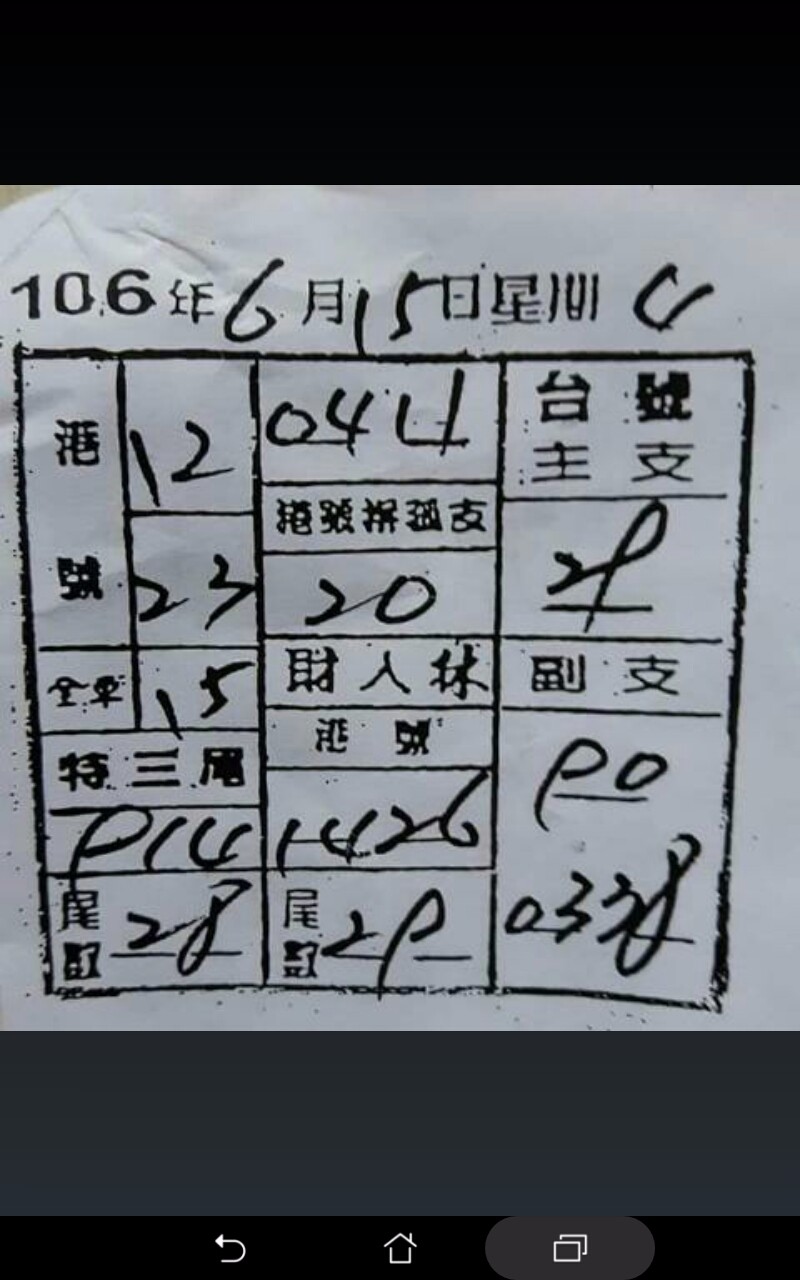 106年6月15日星期四
港號
12
23
全車
15
特三尾
914
尾數
28
044
港號
20
財人林
港號
1426
尾數
29
台號
主支
28
副支
90
0338